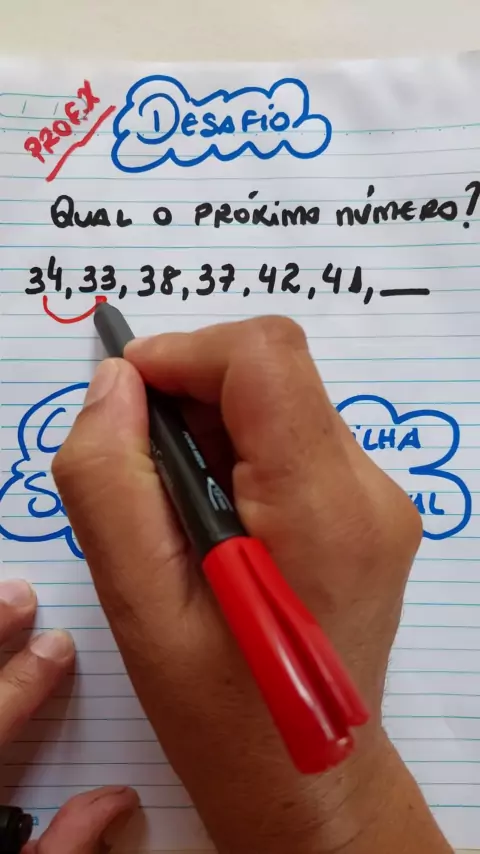 PROF.X
DESAFIO
QUAL O PRÓXIMO NÚMERO?
34, 33, 38, 37, 42, 41, __